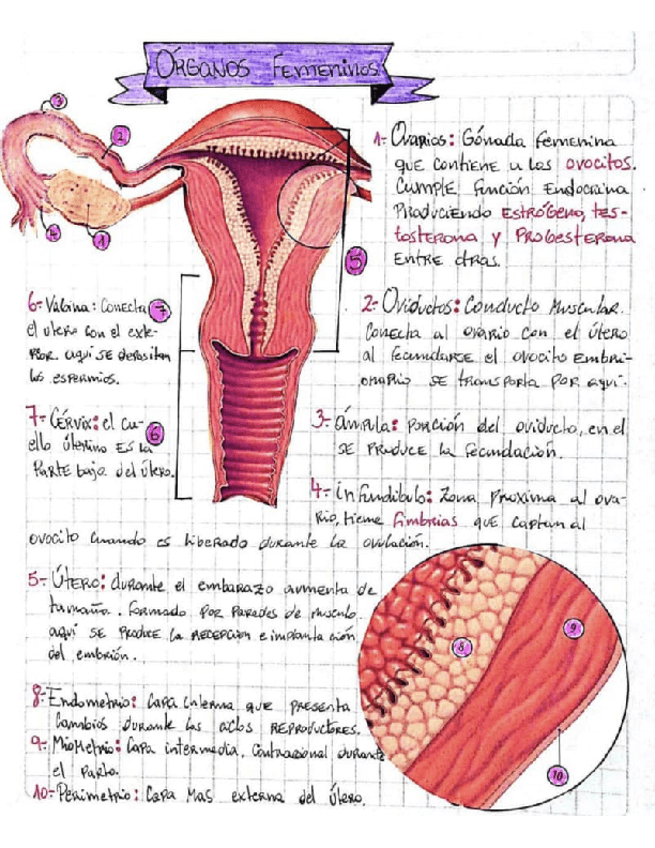 ÓRGANOS FEMENINOS
1- Ovarios: Gónada femenina
que contiene a los ovocitos.
Cumple función Endocrina
Produciendo Estrógeno, tes-
tosterona y Progesterona
Entre otras.
2- Oviductos: Conducto Muscular.
Conecta al ovario con el útero
al fecundarse el ovocito embri-
onario se transporta por aquí.
3- ámpula: porción del oviducto, en el
se produce la fecundación.
4- infundíbulo: Zona proxima al ova-
rio, tiene fimbrias que captan al
ovocito cuando es liberado durante la ovulación.
6- Vagina: Conecta
el utero con el exte-
rior. aquí se depositan
los espermios.
7- Cérvix: el cu-
ello úterino es la
parte baja del útero.
5- ÚTERO: durante el embarazo aumenta de
tamaño. formado por paredes de musculo
aquí se produce la recepcion e implantación
del embrión.
8- Endometrio: Capa interna que presenta
Cambios durante los ciclos reproductores.
9- Miometrio: Capa intermedia. Contraccional durante
el parto.
10- Perimetrio: Capa mas externa del útero.
3
2
4
1
5
7
6
8
9
10